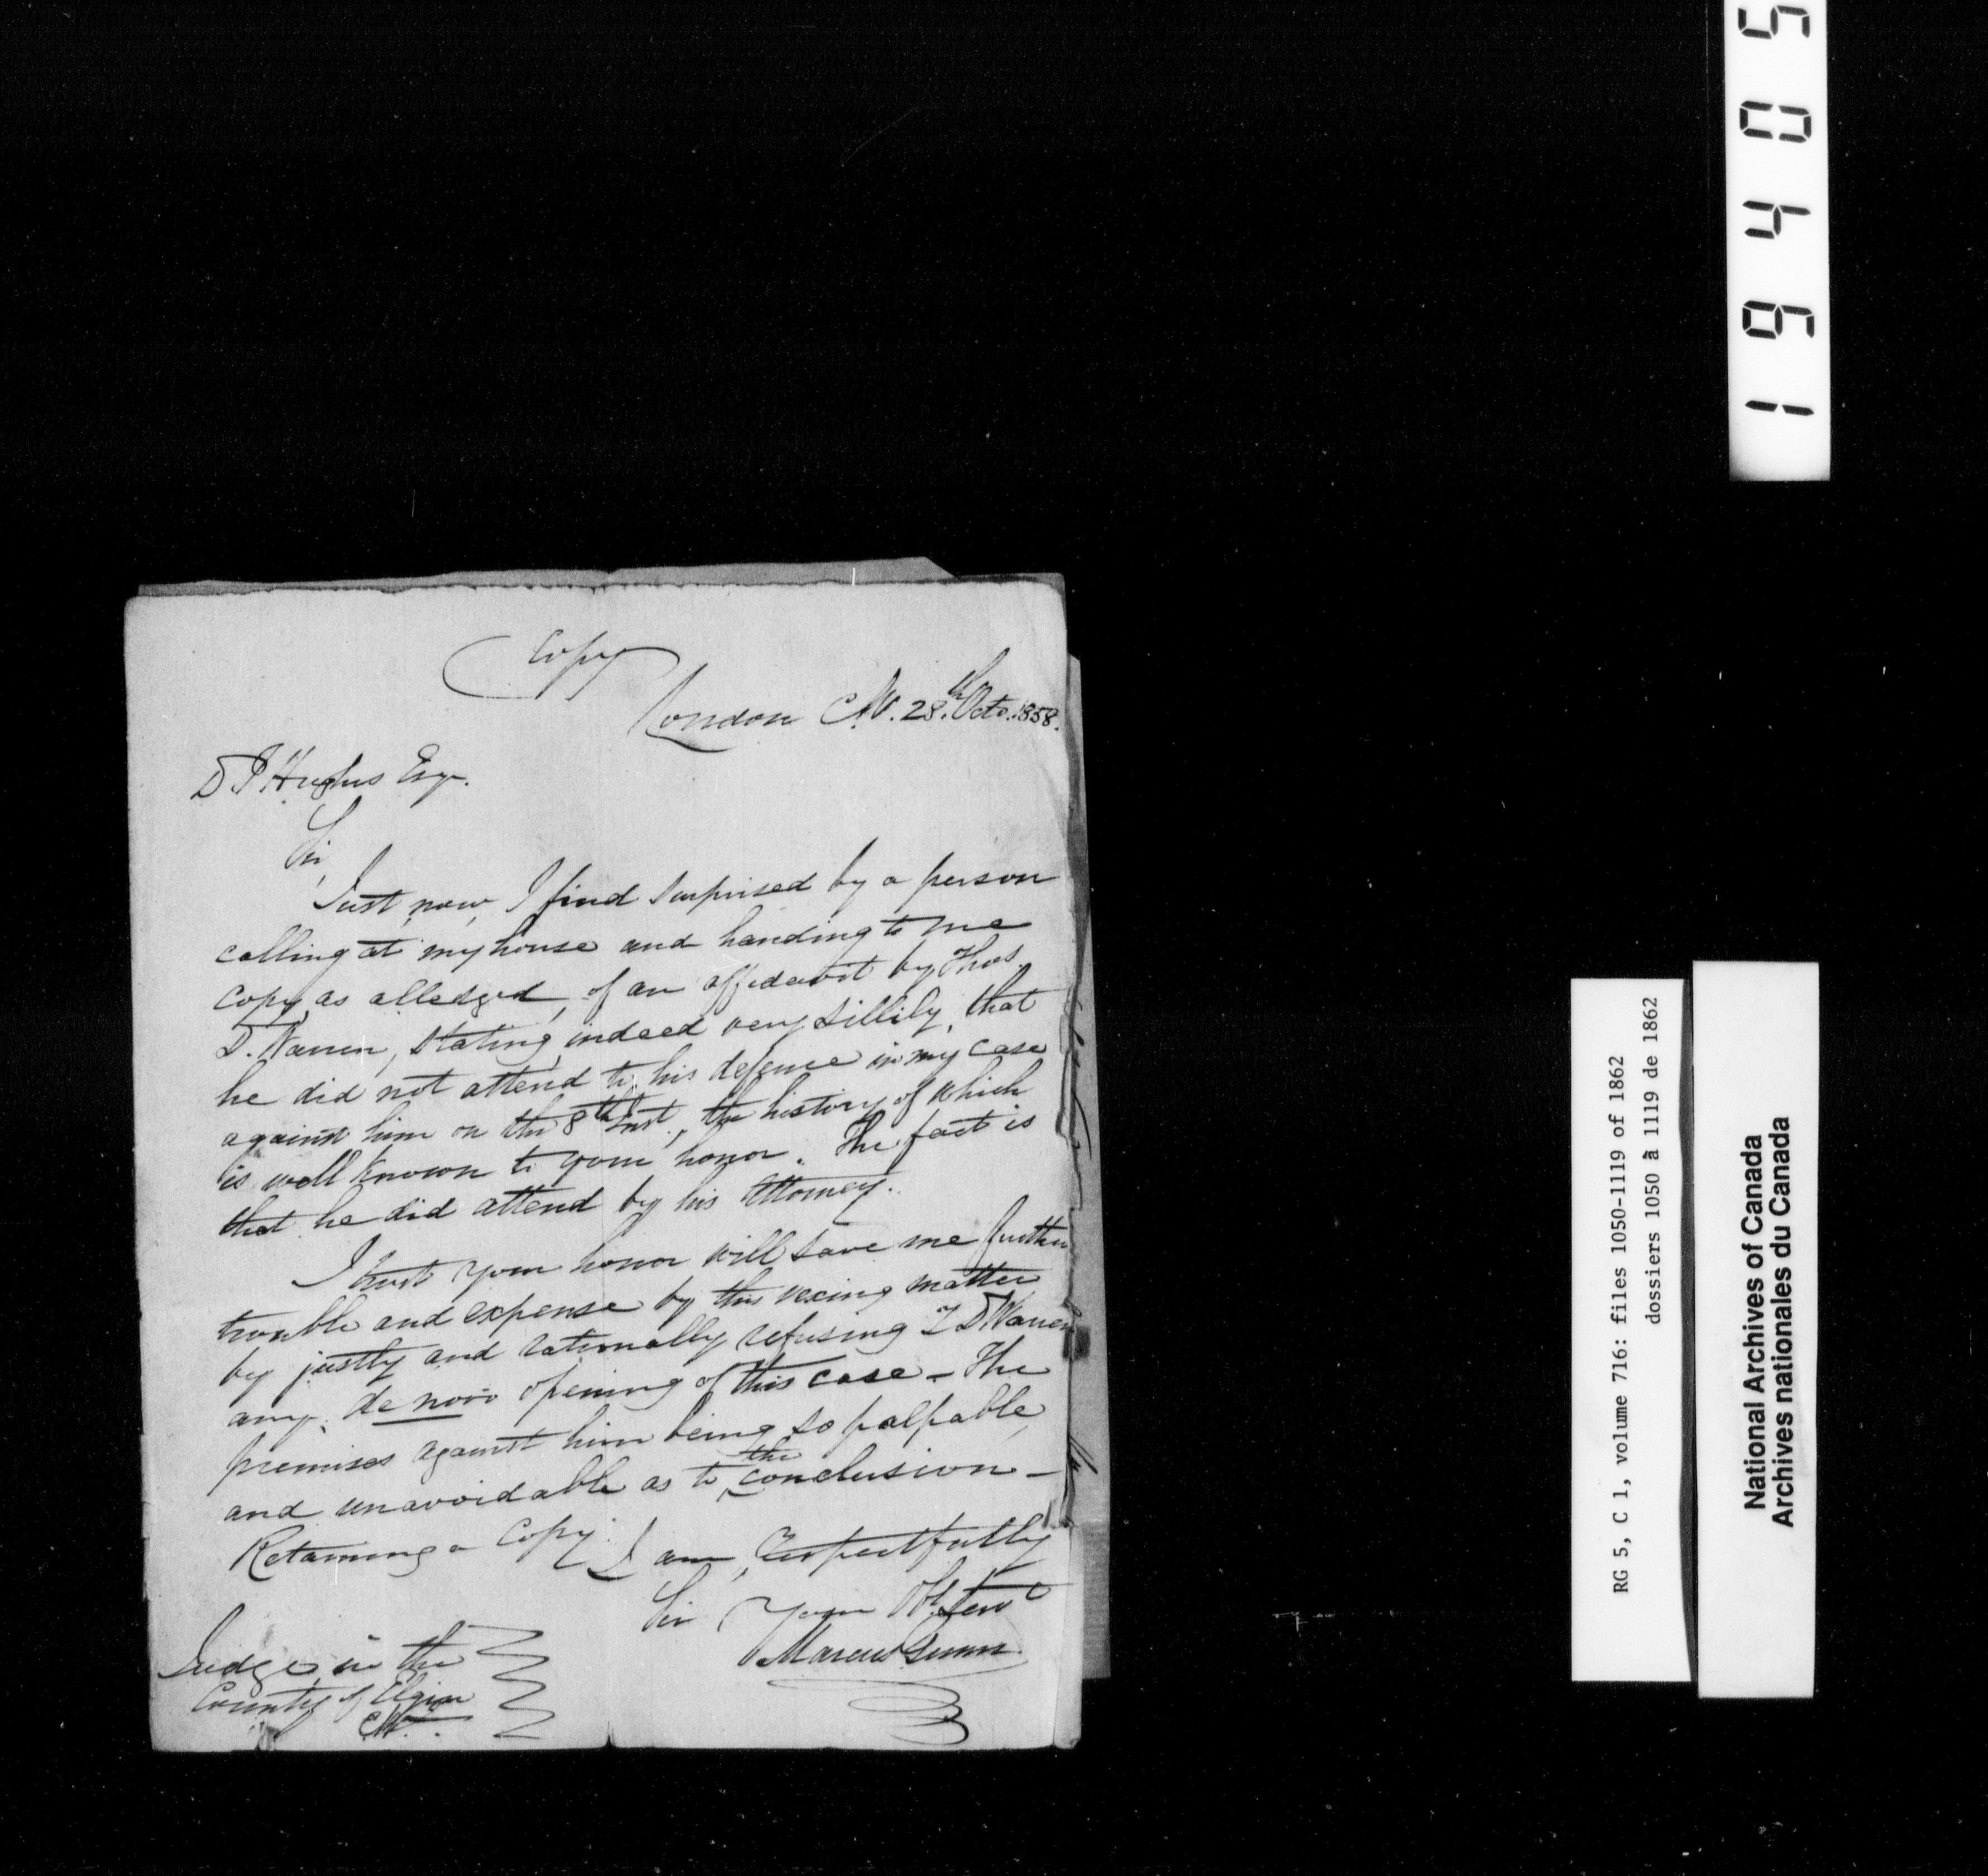 Copy
London C.W. 28th Octo. 1858.
D J Hughes Esqr.
Sir,
Just now, I find surprised by a person
calling at my house and handing to me
copy, as alledged, of an affidavit by Thos.
D. Warren, stating indeed very sillily, that
he did not attend to his defence in my case
against him on the 8th Inst., the history of which
is well known to your honor. The fact is
that he did attend by his Attorney.
I trust your honor will save me further
trouble and expense by this vexing matter
by justly and rationally refusing T D Warren
any de novo opening of this case - The
premises against him being so palpable,
and unavoidable as to the conclusion -
Retaining a Copy. I am, respectfully
Sir Your Ob. Servt
Marcus Gunn.
Judge, in the
County of Elgin
C.W.
19405
RG 5, C 1, volume 716: files 1050-1119 of 1862
dossiers 1050 à 1119 de 1862
National Archives of Canada
Archives nationales du Canada